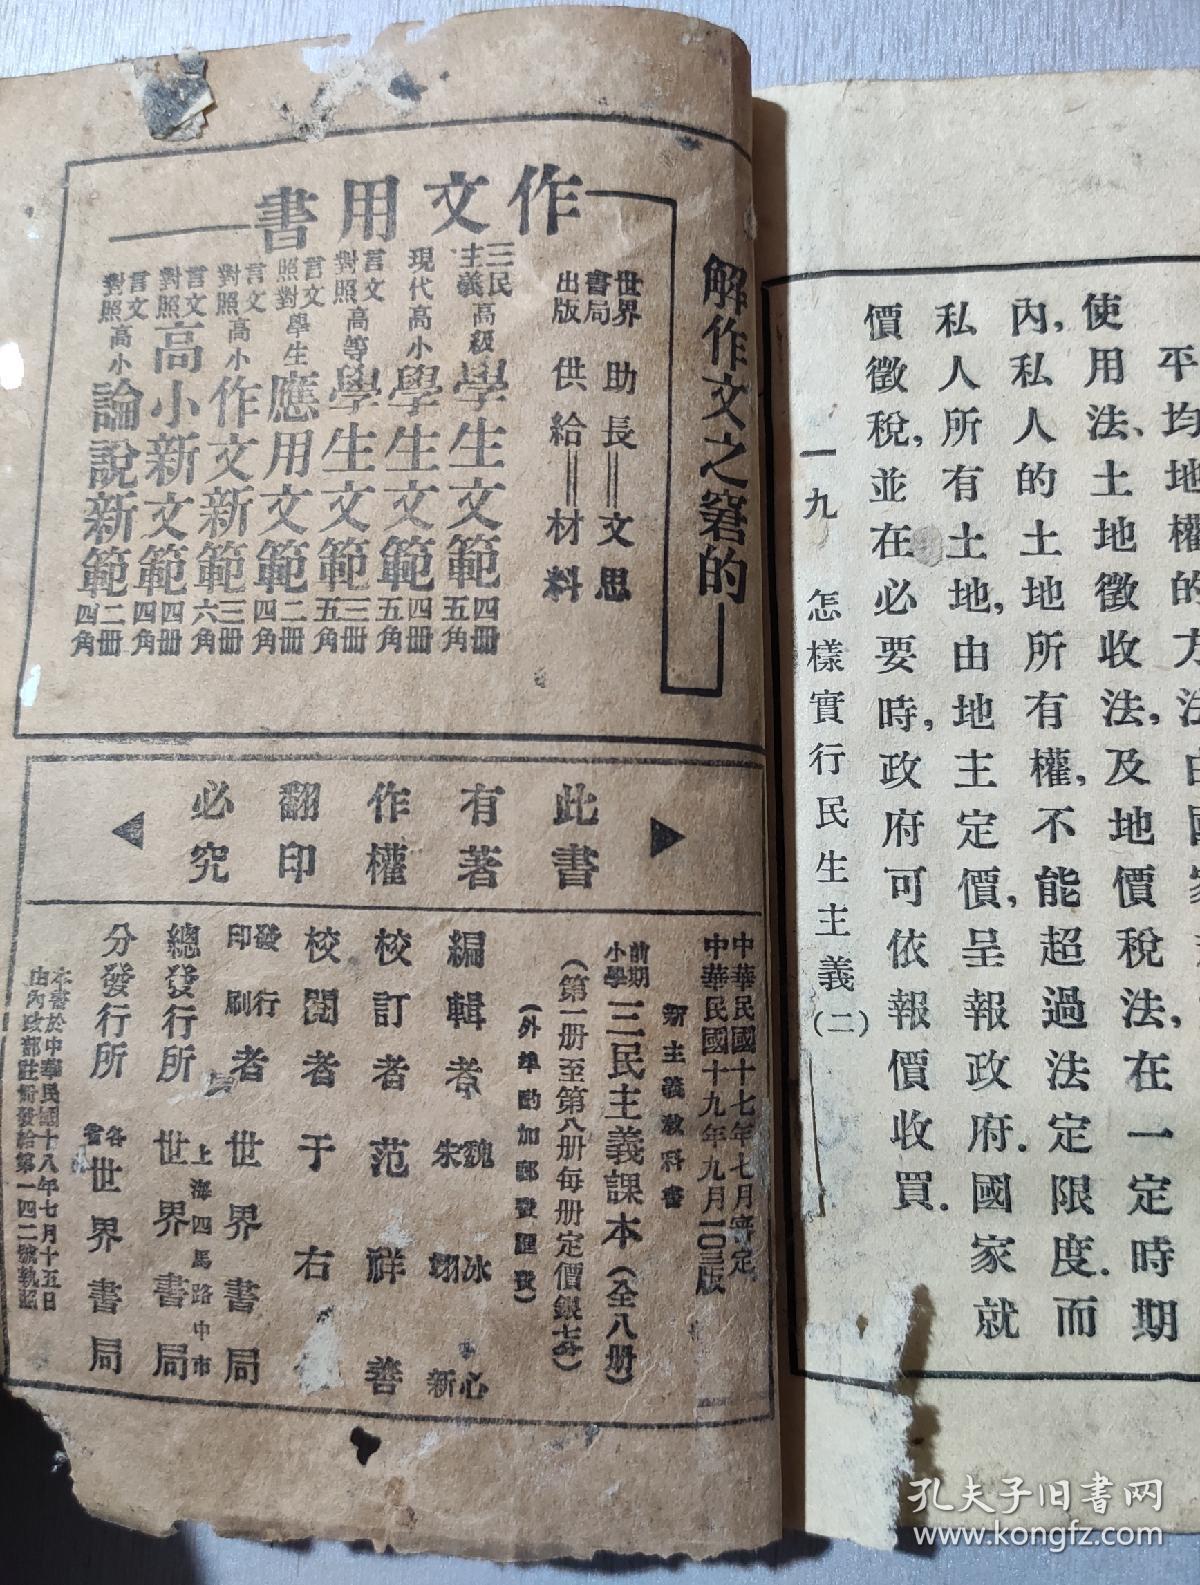 平均地權的方法由國家
使用法、土地徵收法，及地價稅法，在一定時期
內，私人的土地所有權，不能超過法定限度．而
私人所有土地，由地主定價，呈報政府．國家就
價徵稅，並在必要時，政府可依報價收買．
一九 怎樣實行民生主義(二)
解作文之窘的
作文用書
世界書局出版
助長＝文思
供給＝材料
三民主義高級學生文範四冊五角
現代高小學生文範四冊五角
言文對照高等學生文範三冊五角
言文對照學生應用文範二冊四角
言文對照高小作文新範三冊六角
言文對照高小新文範四冊四角
言文對照高小論說新範二冊四角
此書有著作權翻印必究
中華民國十七年七月審定
中華民國十九年九月一〇三版
新主義教科書
前期小學三民主義課本(全八冊)
(第一册至第八册每册定價銀七分)
(外埠酌加郵費匯費)
編輯者 魏冰心 朱翊新
校訂者 范祥善
校閱者 于右
發行印刷者 世界書局
總發行所 上海四馬路中市 世界書局
分發行所 各省世界書局
本書於中華民國十八年七月十五日
由內政部註冊發給第一四二號執照
孔夫子旧书网
www.kongfz.com